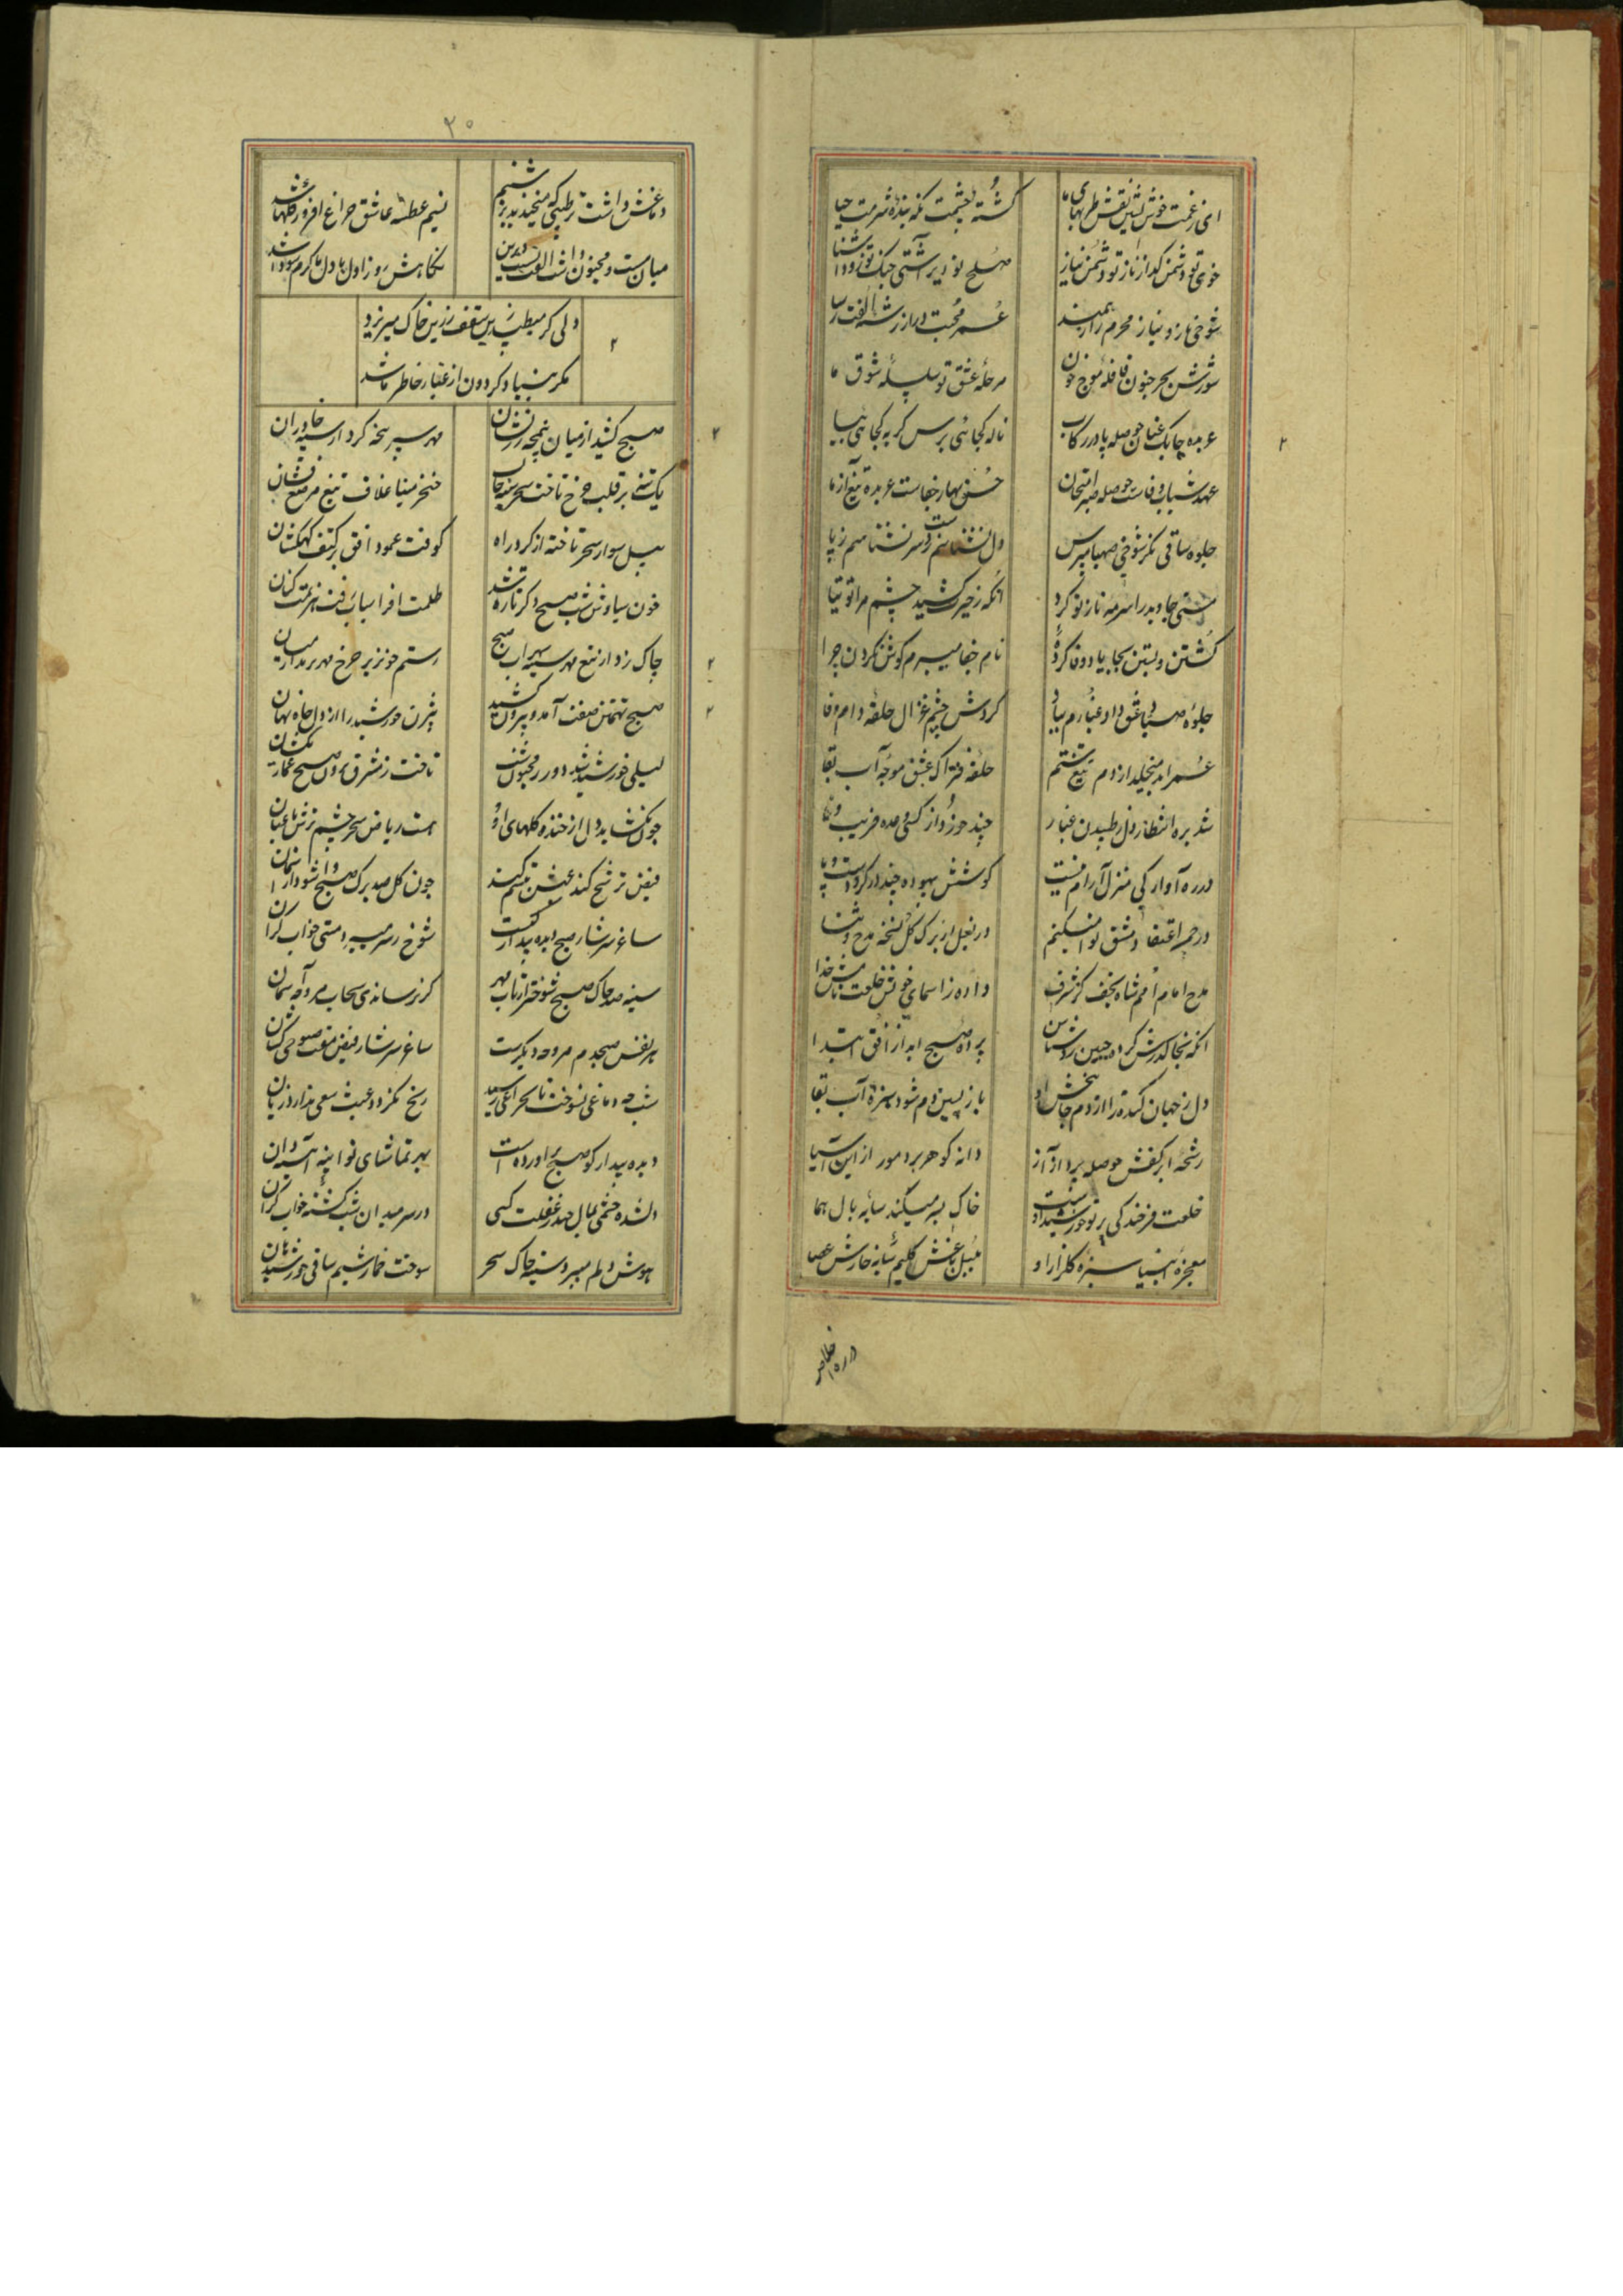 ای ز غمت خوش نشین نقش طربهای ما
کشته چشمت نگه بنده شرمت حیا
خوی تو دشمن گداز ناز تو دشمن نیاز
صلح تو دیر آشتی جنگ تو زود آشنا
شوخی ناز و نیاز محرم راز همند
عمر محبت دراز رشته الفت رسا
شورش بحر جنون قافله موج خون
مرحله عشق تو سلسله شوق ما
عربده چابک عنان حوصله پا در رکاب
ناله کجائی برس گریه کجائی بیا
عهد شباب وفاست حوصله صبر امتحان
حسن بهار جفاست عربده تیغ آزما
جلوه ساقی نگر شوخی صهبا مپرس
دل نشناسم ز دست سر نشناسم ز پا
مستی جاوید را سرمه ناز تو کرد
آنکه ز حیرت کشید چشم مرا توتیا
کشتن و بستن بجا یاد وفا کرده
نام جفا میبرم گوش نکردن چرا
جلوه صیاد عشق داد غبارم بباد
گردش چشم غزال حلقه دام وفا
عمر ابد میچکد از دم تیغ ستم
حلقه فتراک عشق موجه آب بقا
شد بره انتظار دل ز طپیدن غبار
چند خورد از کسی وعده فریب وفا
در ره آوارگی منزل آرام نیست
کوشش بیهوده چند
در چمن اعتقاد مشق نوا میکنم
در بغل از برگ گل نسخه مدح و ثنا
مدح امام امم شاه نجف کز شرف
داده ز اسمای خویش خلعت نامش خدا
آنکه بخاک درش کرده جبین روشناس
پرده صبح ابد از افق ابتدا
دل ز جهان کنده را از دم جانبخش او
باز پسین دم شود سبزه آب بقا
رشحه ابر کفش حوصله پرداز آز
دانه گوهر برد مور از این آسیا
خلعت فرخندگی پرتو خورشید اوست
خاک بسر میکند سایه بال هما
معجزه انبیا سبزه گلزار او
بلبل باغش کلیم شانه خارش عصا
ظاهر
۲۰
دماغش داشت ترطیبی که میخندید بر شبنم
نسیم عطسه عاشق چراغ افروز گلها شد
میان مست و مجنون داشت الفت نسبت دیرین
نگاهش روز اول با دل ما گرم سودا شد
دلی گر میطپد زین سقف زرین خاک میریزد
مگر بنیاد گردون از غبار خاطر ما شد
صبح کشید از میان نیمچه زرنشان
مهر سپر پنجه کرد از سپه خاوران
یک تنه بر قلب چرخ تاخت سحر
خنجر مینا غلاف تیغ مرصع فشان
پیل سوار سحر تاخته از گرد راه
کوفت عمود افق بر کتف کهکشان
خون سیاوش شب صبح دگر تازه شد
ظلمت افراسیاب رفت هزیمت کنان
چاک زد از تیغ مهر سینه سهراب صبح
رستم خونریز چرخ
صبح تهمتن صفت آمد و بیرون کشید
بیژن خورشید را از دل چاه نهان
لیلی خورشید شد دور ز مجنون شب
تاخت ز مشرق برون صبح
چون نگشاید دل از خنده گلهای او
هست ریاض سحر چشم ترش باغبان
فیض ترشح کند عیش تبسم کند
چون گل صد برگ صبح وا شود از آسمان
ساغر سرشار صبح دیده بیدار کیست
شوخ ز سر میبرد مستی خواب گران
سینه صد چاک صبح شوختر از تاب مهر
گر نرساندی سحاب مروحه آسمان
هر نفس صبحدم مروحه دیگرست
ساغر سرشار فیض مفت صبوحی کشان
شب چه دماغی نسوخت تا بسحر
رنج نمیزد عبث سعی ندارد زیان
دیده بیدار کو صبح برآورده است
بهر تماشای تو آینه آینه دان
وا نشده چشمی بمال چند ز غفلت کسی
در سر میدان شب کشته خواب گران
هوش دلم میبرد سینه چاک سحر
سوخت خمار شبم ساقی خورشید هان